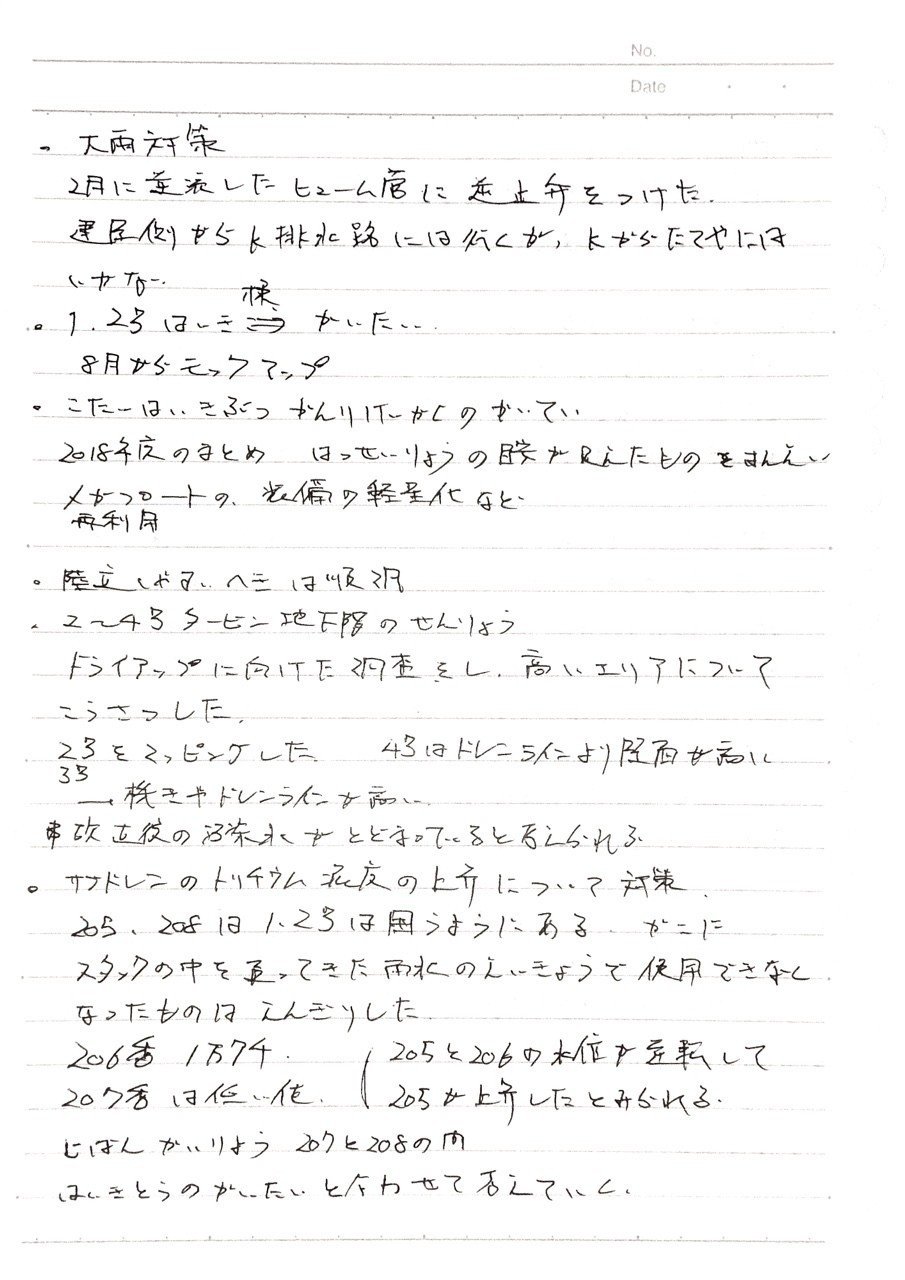 No.
Date
・大雨対策
2月に逆流したヒューム管に逆止弁をつけた.
建屋側からK排水路には行くが, KからたてやにはRead
いかない.
棟
・1.2号はいき⇒かいたい.
8月からモックアップ
・こたーはいきぶつかんりけーかくのかいてい
2018年度のまとめ はっせいりょうの目安が見えたものをはんえい
メガフロートの、装備の軽量化など
再利用
・陸立しゃすいへきは順調
・2〜4号タービン地下階のせんりょう
ドライアップに向けた調査をし、高いエリアについて
こうさつした.
2号をマッピングした 4号はドレンラインより床面が高い
3号
→ 機きやドレンラインが高い.
事故直後の汚染水がとどまっていると考えられる
・サブドレンのトリチウム濃度の上昇について対策.
205、208は1.2号は囲うようにある かこに
スタックの中を通ってきた雨水のえいきょうで使用できなく
なったものはえんぎりした.
206番 1万7千. 205と206の水位が逆転して
207番は低い値. 205が上昇したとみられる.
じばんかいりょう 207と208の間
はいきとうのかいたいと合わせて考えていく.